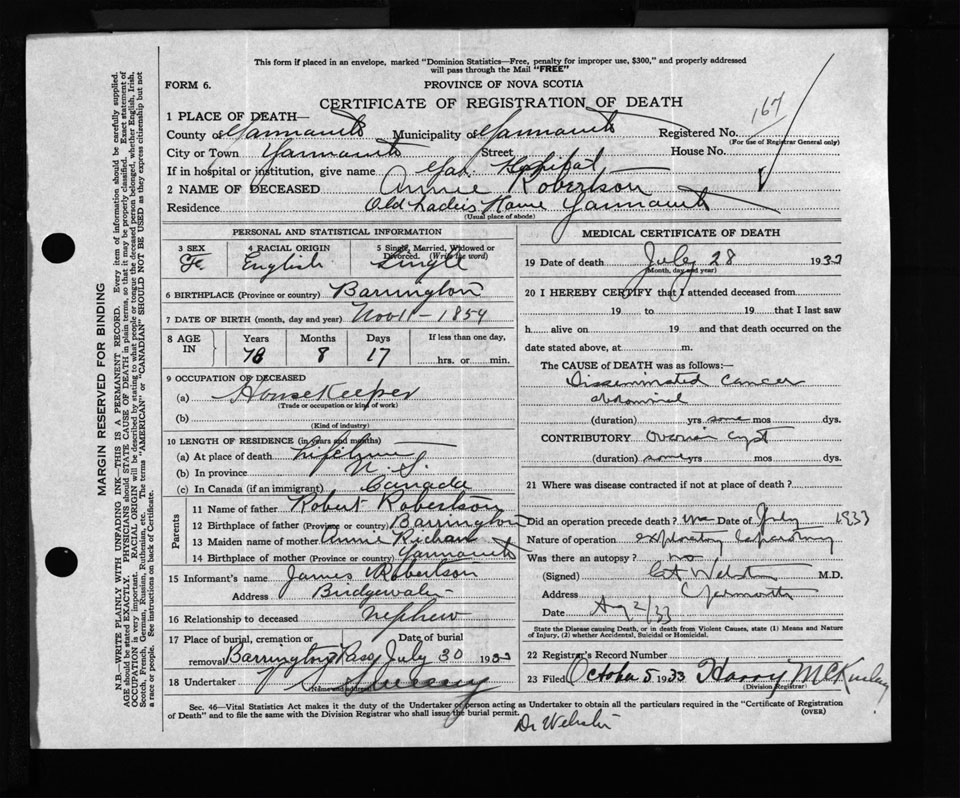 This form if placed in an envelope, marked "Dominion Statistics—Free, penalty for improper use, $300," and properly addressed
will pass through the Mail "FREE"
FORM 6.
PROVINCE OF NOVA SCOTIA
CERTIFICATE OF REGISTRATION OF DEATH
167
1 PLACE OF DEATH—
County of Yarmouth Municipality of Yarmouth Registered No.
(For use of Registrar General only)
City or Town Yarmouth Street House No.
If in hospital or institution, give name Yar. Hospital
2 NAME OF DECEASED Annie Robertson
Residence Old Ladies Home Yarmouth
(Usual place of abode)
PERSONAL AND STATISTICAL INFORMATION
3 SEX Fe
4 RACIAL ORIGIN English
5 Single, Married, Widowed or Divorced. (Write the word) Single
6 BIRTHPLACE (Province or country) Barrington
7 DATE OF BIRTH (month, day and year) Nov 11 - 1854
8 AGE IN Years Months Days If less than one day,
78 8 17 hrs. or min.
9 OCCUPATION OF DECEASED
(a) Housekeeper
(Trade or occupation or kind of work)
(b)
(Kind of industry)
10 LENGTH OF RESIDENCE (in years and months)
(a) At place of death Lifetime
(b) In province N. S.
(c) In Canada (if an immigrant) Canada
Parents
11 Name of father Robert Robertson
12 Birthplace of father (Province or country) Barrington
13 Maiden name of mother Annie
14 Birthplace of mother (Province or country) Yarmouth
15 Informant's name James Robertson
Address Bridgewater
16 Relationship to deceased nephew
17 Place of burial, cremation or removal Barrington Pass Date of burial July 30 1933
18 Undertaker V S Sweeny
(Name and address)
MEDICAL CERTIFICATE OF DEATH
19 Date of death July 28 1933
(Month, day and year)
20 I HEREBY CERTIFY that I attended deceased from
19 to 19 that I last saw
h alive on 19 and that death occurred on the
date stated above, at m.
The CAUSE OF DEATH was as follows:—
Disseminated Cancer
abdominal
(duration) yrs some mos dys.
CONTRIBUTORY Ovarian cyst
(duration) some yrs mos dys.
21 Where was disease contracted if not at place of death?
Did an operation precede death? Date of July 1933
Nature of operation exploratory laparotomy
Was there an autopsy? no
(Signed) Webster M.D.
Address Yarmouth
Date Aug 2/33
State the Disease causing Death, or in death from Violent Causes, state (1) Means and
Nature of Injury, (2) whether Accidental, Suicidal or Homicidal.
22 Registrar's Record Number
23 Filed October 5 1933 Harry McKinley
(Division Registrar)
Sec. 46—Vital Statistics Act makes it the duty of the Undertaker or person acting as Undertaker to obtain all the particulars required in the "Certificate of Registration
of Death" and to file the same with the Division Registrar who shall issue the burial permit.
(OVER)
Dr Webster
MARGIN RESERVED FOR BINDING
N.B.—WRITE PLAINLY WITH UNFADING INK—THIS IS A PERMANENT RECORD. Every item of information should be carefully supplied.
AGE should be stated EXACTLY. PHYSICIANS should STATE CAUSE OF DEATH in plain terms, so that it may be properly classified. Exact statement of
OCCUPATION is very important. RACIAL ORIGIN will be described by stating to what people or tongue the deceased person belonged, whether English, Irish,
Scotch, French, German, Russian, Ruthenian, etc. The terms "AMERICAN" or "CANADIAN" SHOULD NOT BE USED as they express citizenship but not
a race or people. See instructions on back of Certificate.